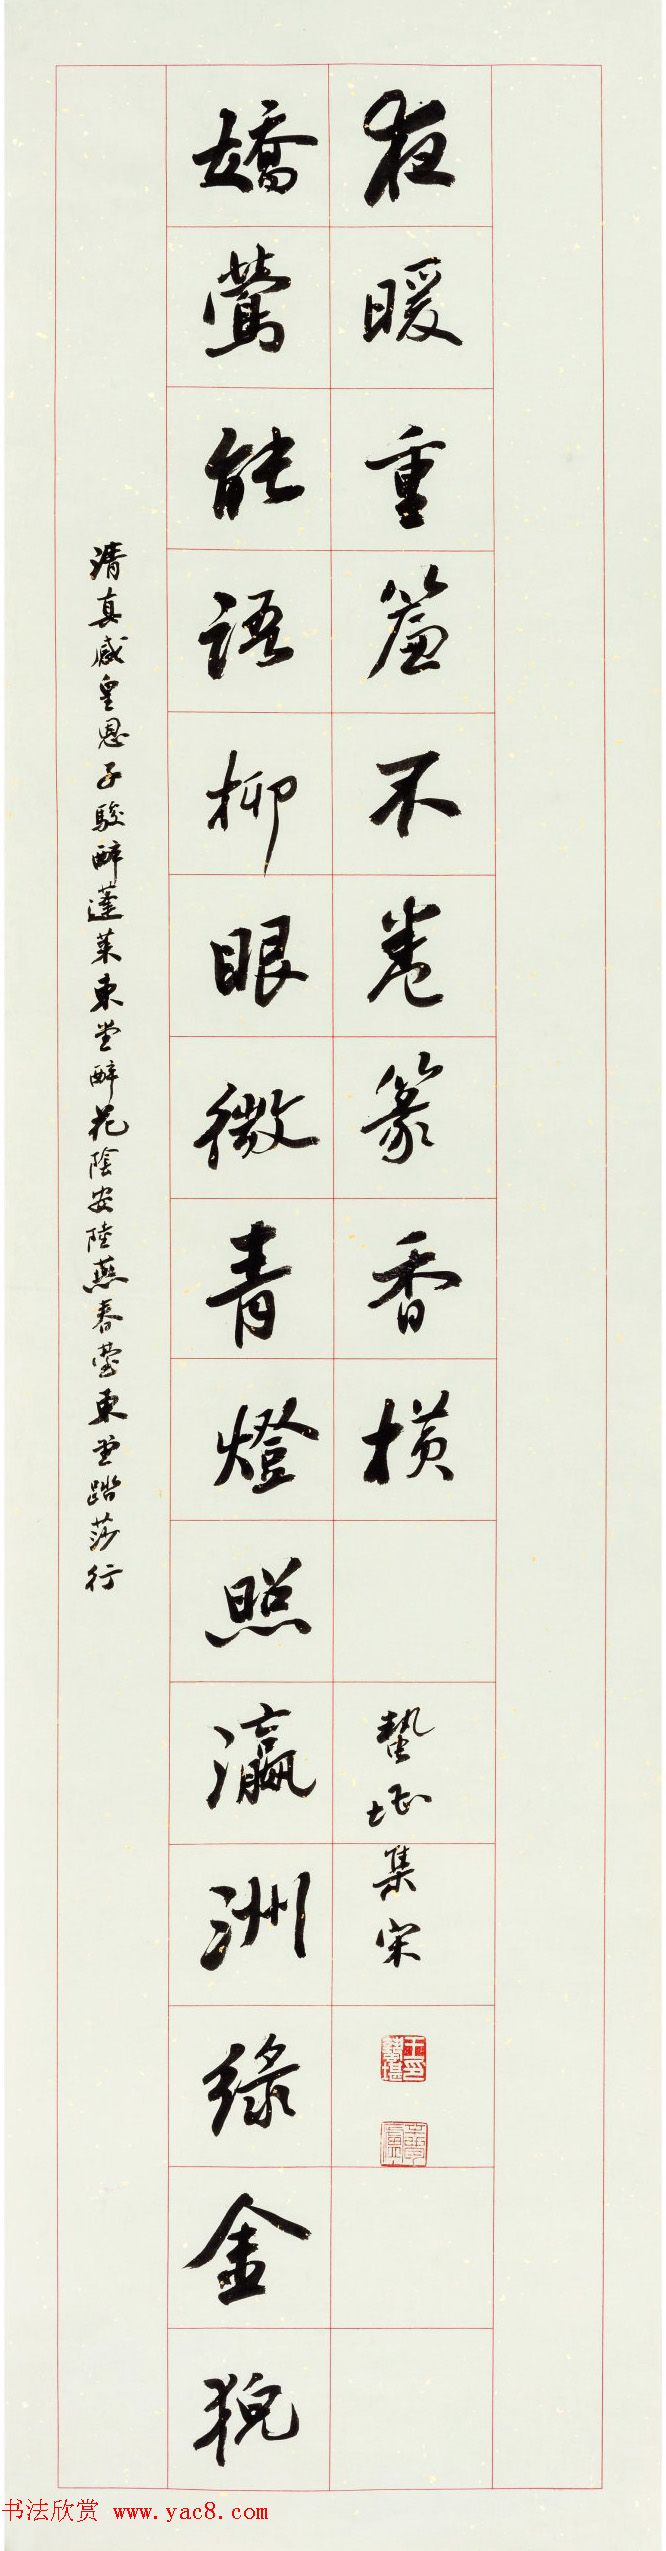 清真感皇恩子駿醉蓬萊東堂醉花陰安陸燕春臺東堂踏莎行
嬌鶯能語柳眼微青燈照瀛洲綠金猊
夜暖重簾不卷篆香橫
蟄堪集宋
王印蟄堪
书法欣赏 www.yac8.com